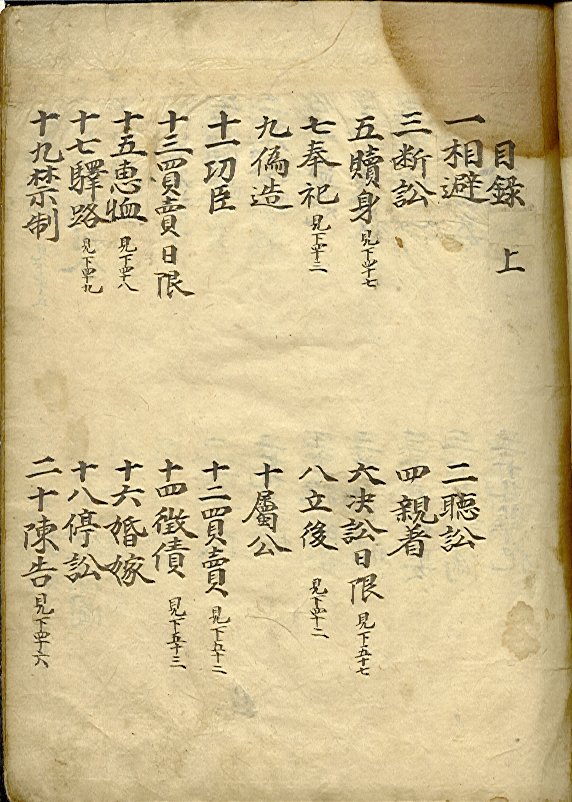 目錄 上
一相避 二聽訟
三断訟 四親着
五贖身 見下四十七 六决訟日限 見下五十七
七奉祀 見下四十三 八立後 見下四十二
九偽造 十屬公
十一功臣 十二買賣 見下五十二
十三買賣日限 十四徵債 見下五十三
十五恵恤 見下四十八 十六婚嫁
十七驛路 見下四十九 十八停訟
十九禁制 二十陳告 見下四十六